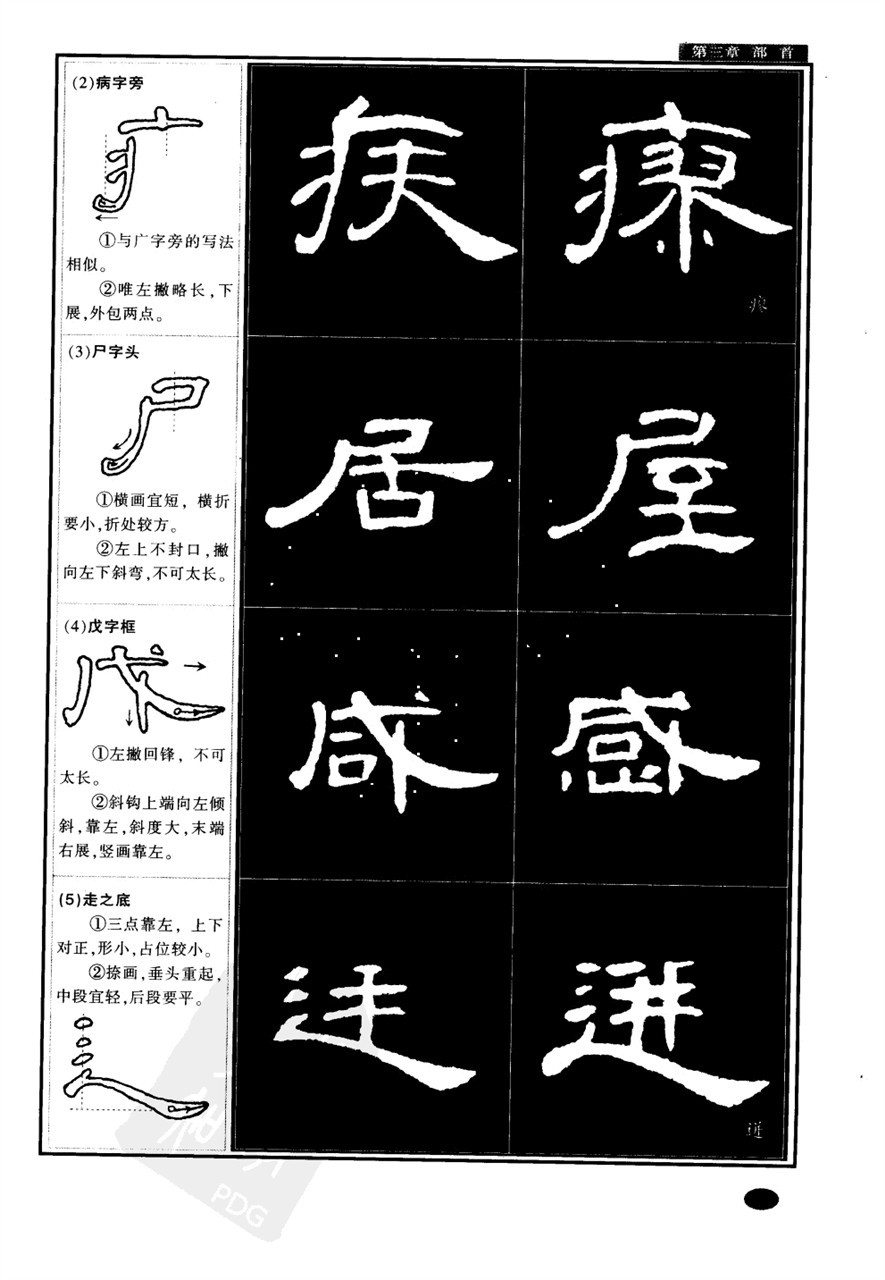 第三章 部 首
(2)病字旁
①与广字旁的写法
相似。
②唯左撇略长,下
展,外包两点。
疾
(3)尸字头
①横画宜短，横折
要小,折处较方。
②左上不封口,撇
向左下斜弯,不可太长。
居 屋
(4)戊字框
①左撇回锋，不可
太长。
②斜钩上端向左倾
斜,靠左,斜度大,末端
右展,竖画靠左。
咸 感
(5)走之底
①三点靠左，上下
对正,形小,占位较小。
②捺画,垂头重起,
中段宜轻,后段要平。
PDG